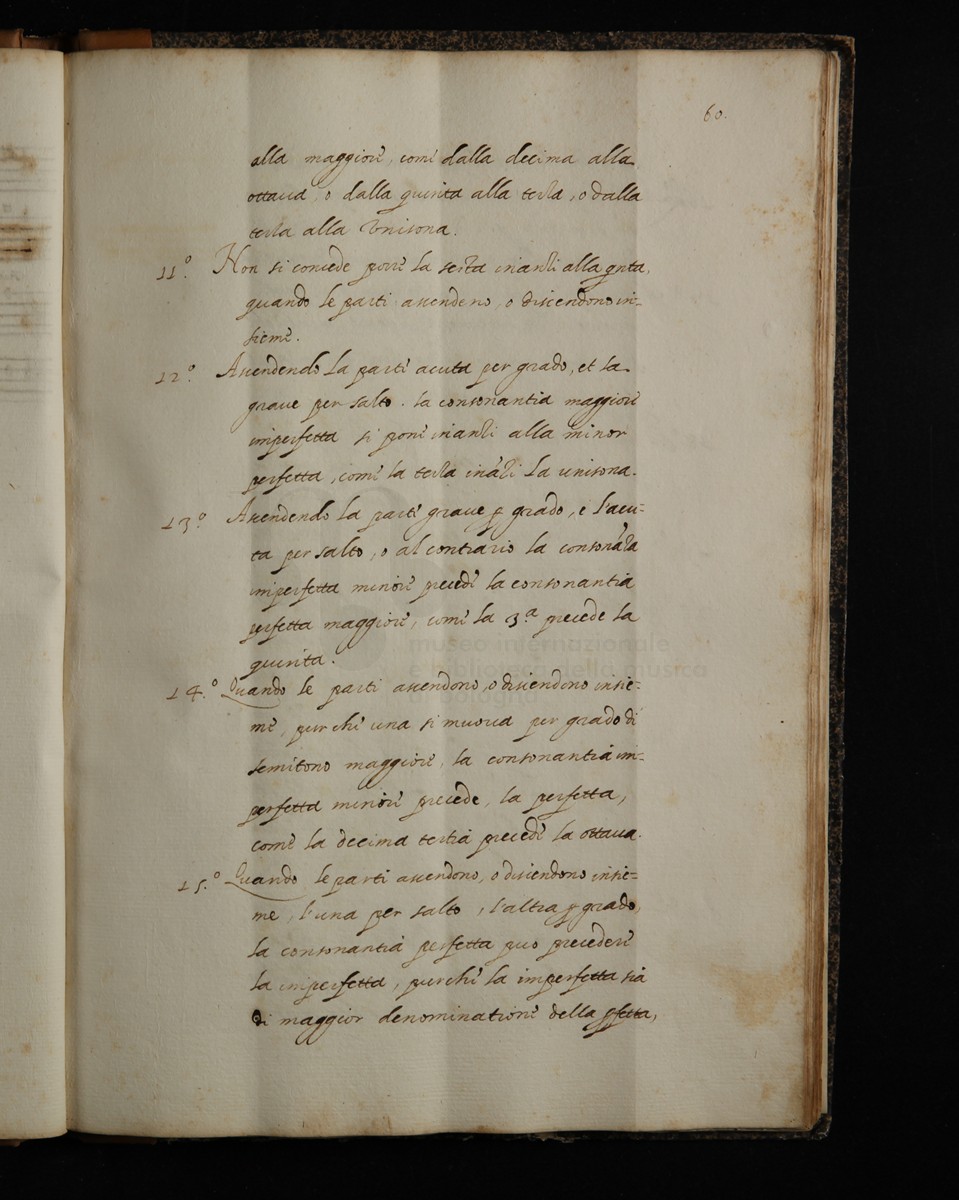 60.
alla maggiore, come dalla decima alla
ottaua, o dalla quinta alla terza, o dalla
terza alla Vnisona.
11.º Non si concede porre la sesta inanzi alla qnta,
quando le parti ascendeno, o discendono in=
sieme.
12.º Ascendendo la parte acuta per grado, et la
graue per salto. la consonantia maggiore
imperfetta si pone inanzi alla minor
perfetta, come la terza ināzi la unisona.
13.º Ascendendo la parte graue ꝑ grado, e l'acu=
ta per salto, o al contrario la consonāza
imperfetta minore precede la consonantia
perfetta maggiore, come la 3.ª precede la
quinta.
14.º Quando le parti ascendono, o discendono insie=
me, purche una si muoua per grado di
semitono maggiore, la consonantia im=
perfetta minore precede, la perfetta,
come la decima tertia precede la ottaua.
15.º Quando le parti ascendono, o discendono insie=
me, l'una per salto, l'altra ꝑ grado,
la consonantia perfetta puo precedere
la imperfetta, purche la imperfetta sia
di maggior denominatione della ꝑfetta,
museo internazionale
e biblioteca della musica
di bologna